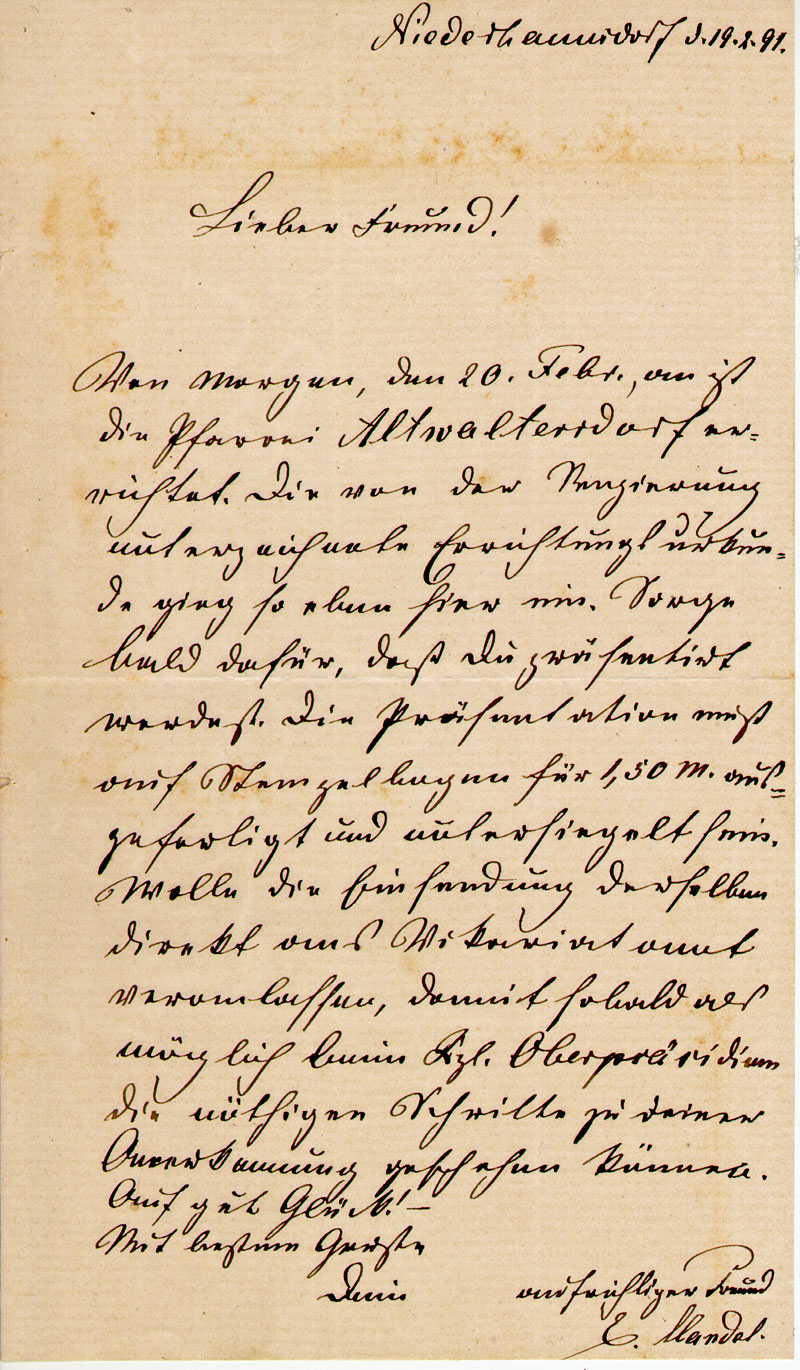 Niederhannsdorf d. 19.2.91.
Lieber Freund!
Von morgen, den 20. Febr., an ist
die Pfarrei Altwaltersdorf er-
richtet. Die von der Regierung
unterzeichnete Errichtungsurkun-
de ging so eben hier ein. Sorge
bald dafür, daß Du präsentirt
werdest. Die Präsentation muß
auf Stempelbogen für 1,50 M. aus-
gefertigt und untersiegelt sein.
Wolle die Einsendung derselben
direkt ans Vikariatamt
veranlassen, damit sobald als
möglich beim Kgl. Oberpräsidium
die nöthigen Schritte zu deiner
Anerkennung geschehen können.
Auf gut Glück! –
Mit bestem Gruße
Dein aufrichtiger Freund
E. Mandel.